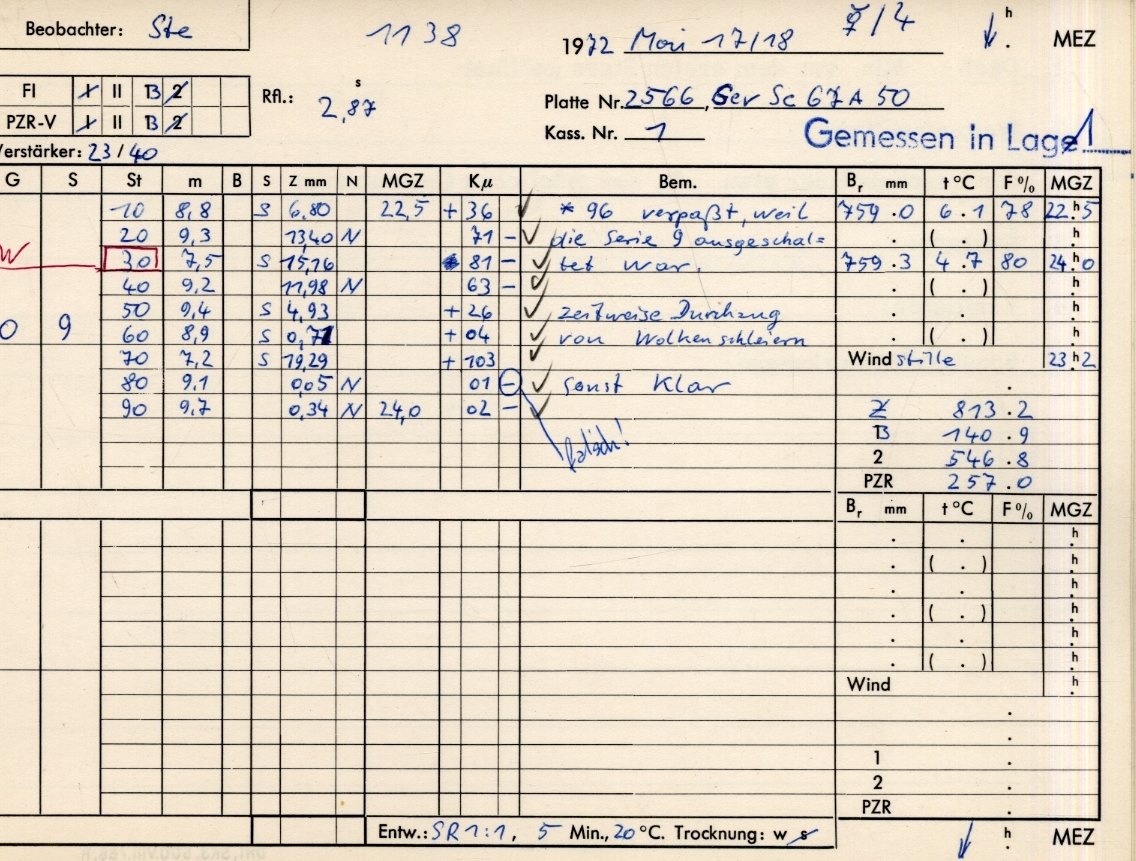 Beobachter: Ste
1138
1972 Mai 17/18
h
MEZ
FI I II B 2
PZR-V I II B 2
Rfl.: 2,87 s
Platte Nr. 2566, Gev Sc 67A 50
Kass. Nr. 1
Gemessen in Lage 1
Verstärker: 23/40
G S St m B S Z mm N MGZ Kμ Bem. Br mm t °C F % MGZ
10 8,8 S 6,80 22,5 + 36 * 96 verpaßt, weil 759.0 6.1 78 22h.5
20 9,3 13,40 N 71 – die Serie 9 ausgeschal= ( . ) h
W 30 7,5 S 15,16 81 – tet war. 759.3 4.7 80 24h.0
40 9,2 11,98 N 63 – ( . ) h
50 9,4 S 4,93 + 26 zeitweise Durchzug . . h
0 9 60 8,9 S 0,71 + 04 von Wolkenschleiern . ( . ) h
70 7,2 S 19,29 + 103 Windstille 23h.2
80 9,1 0,05 N 01 – sonst Klar .
90 9,7 0,34 N MGZ 24,0 02 – Z 813.2
falsch!
B 140.9
2 546.8
PZR 257.0
Br mm t °C F % MGZ
. . h
. ( . ) h
. . h
. ( . ) h
. . h
. ( . ) h
Wind h
.
.
1 .
2 .
PZR .
Entw.: SR 1:1, 5 Min., 20 °C. Trocknung: w s
h
MEZ